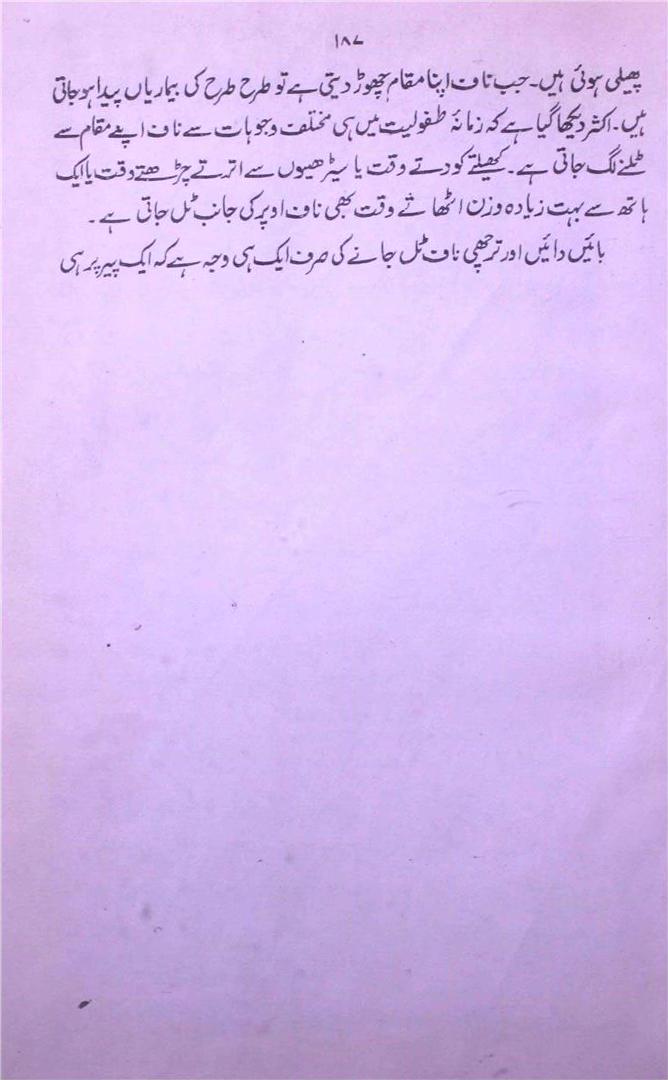 ۱۸۷
پھیلی ہوئی ہیں۔ جب ناف اپنا مقام چھوڑ دیتی ہے تو طرح طرح کی بیماریاں پیدا ہو جاتی
ہیں۔ اکثر دیکھا گیا ہے کہ زمانۂ طفولیت میں ہی مختلف وجوہات سے ناف اپنے مقام سے
ٹلنے لگ جاتی ہے۔ کھیلتے کودتے وقت یا سیڑھیوں سے اترتے چڑھتے وقت یا ایک
ہاتھ سے بہت زیادہ وزن اٹھاتے وقت بھی ناف اوپر کی جانب ٹل جاتی ہے۔
بائیں دائیں اور ترچھی ناف ٹل جانے کی صرف ایک ہی وجہ ہے کہ ایک پیر پر ہی